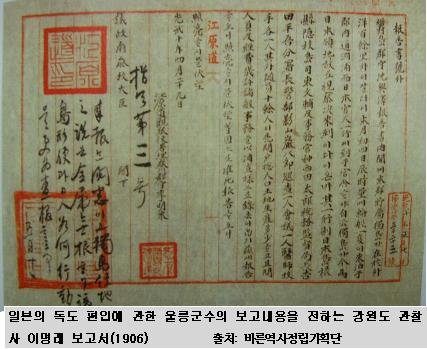 報告書號外
鬱島郡守沈興澤報告書內開에本郡所屬獨島가在於外
洋百餘里外
本月初四日辰時量에輪船一隻이來泊于
郡內道洞浦而日本官人一行이到于官舍
自云獨島가今爲
日本領地故로視察次來到
其一行則日本島根
縣隱岐島司東文輔及事務官神西田太郎稅務監督局長吉
田平吾分署長警部影山巖八郎巡査一人會議員一人醫師技
手各一人其外隨員十餘人이先問戶摠人口土地生産多少
且問
人員及經費幾許諸般事務
以調査
錄去
報告
照亮
伏望等因
准此報告
照亮
伏望
光武十年四月二十九日
江原道觀察使署理春川郡守李明來
議政府參政大臣 閣下
指令 第三号
來報
閱悉이고獨島領地
之說은全屬無根
該
島形便과日人如何行動
更爲查報
事
江原道
일본의 독도 편입에 관한 울릉군수의 보고내용을 전하는 강원도 관찰
사 이명래 보고서(1906) 출처: 바른역사정립기획단